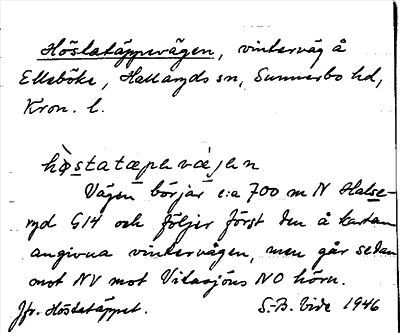 Höstatäppevägen, vinterväg å
Elleböke, Hallaryds sn, Sunnerbo hd,
Kron. l.
hø̀statæpəvæ̀jən
Vägen börjar c:a 700 m N Halse-
ryd G14 och följer först den å kartan
angivna vintervägen, men går sedan
mot NV mot Vitasjöns NO hörn.
Jfr. Höstatäppet.
S.-B. Vide 1946